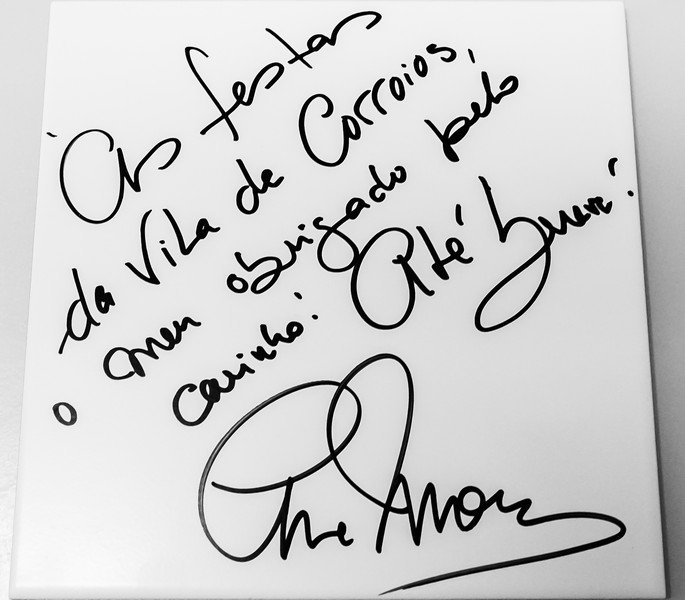 Às festas
da Vila de Corroios,
o meu obrigado pelo
carinho! Até breve!